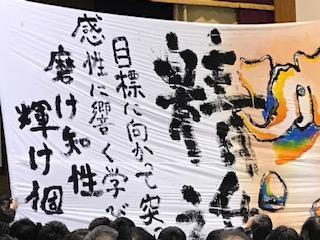 目標に向かって突っ
感性に響く学び
磨け知性
輝け個